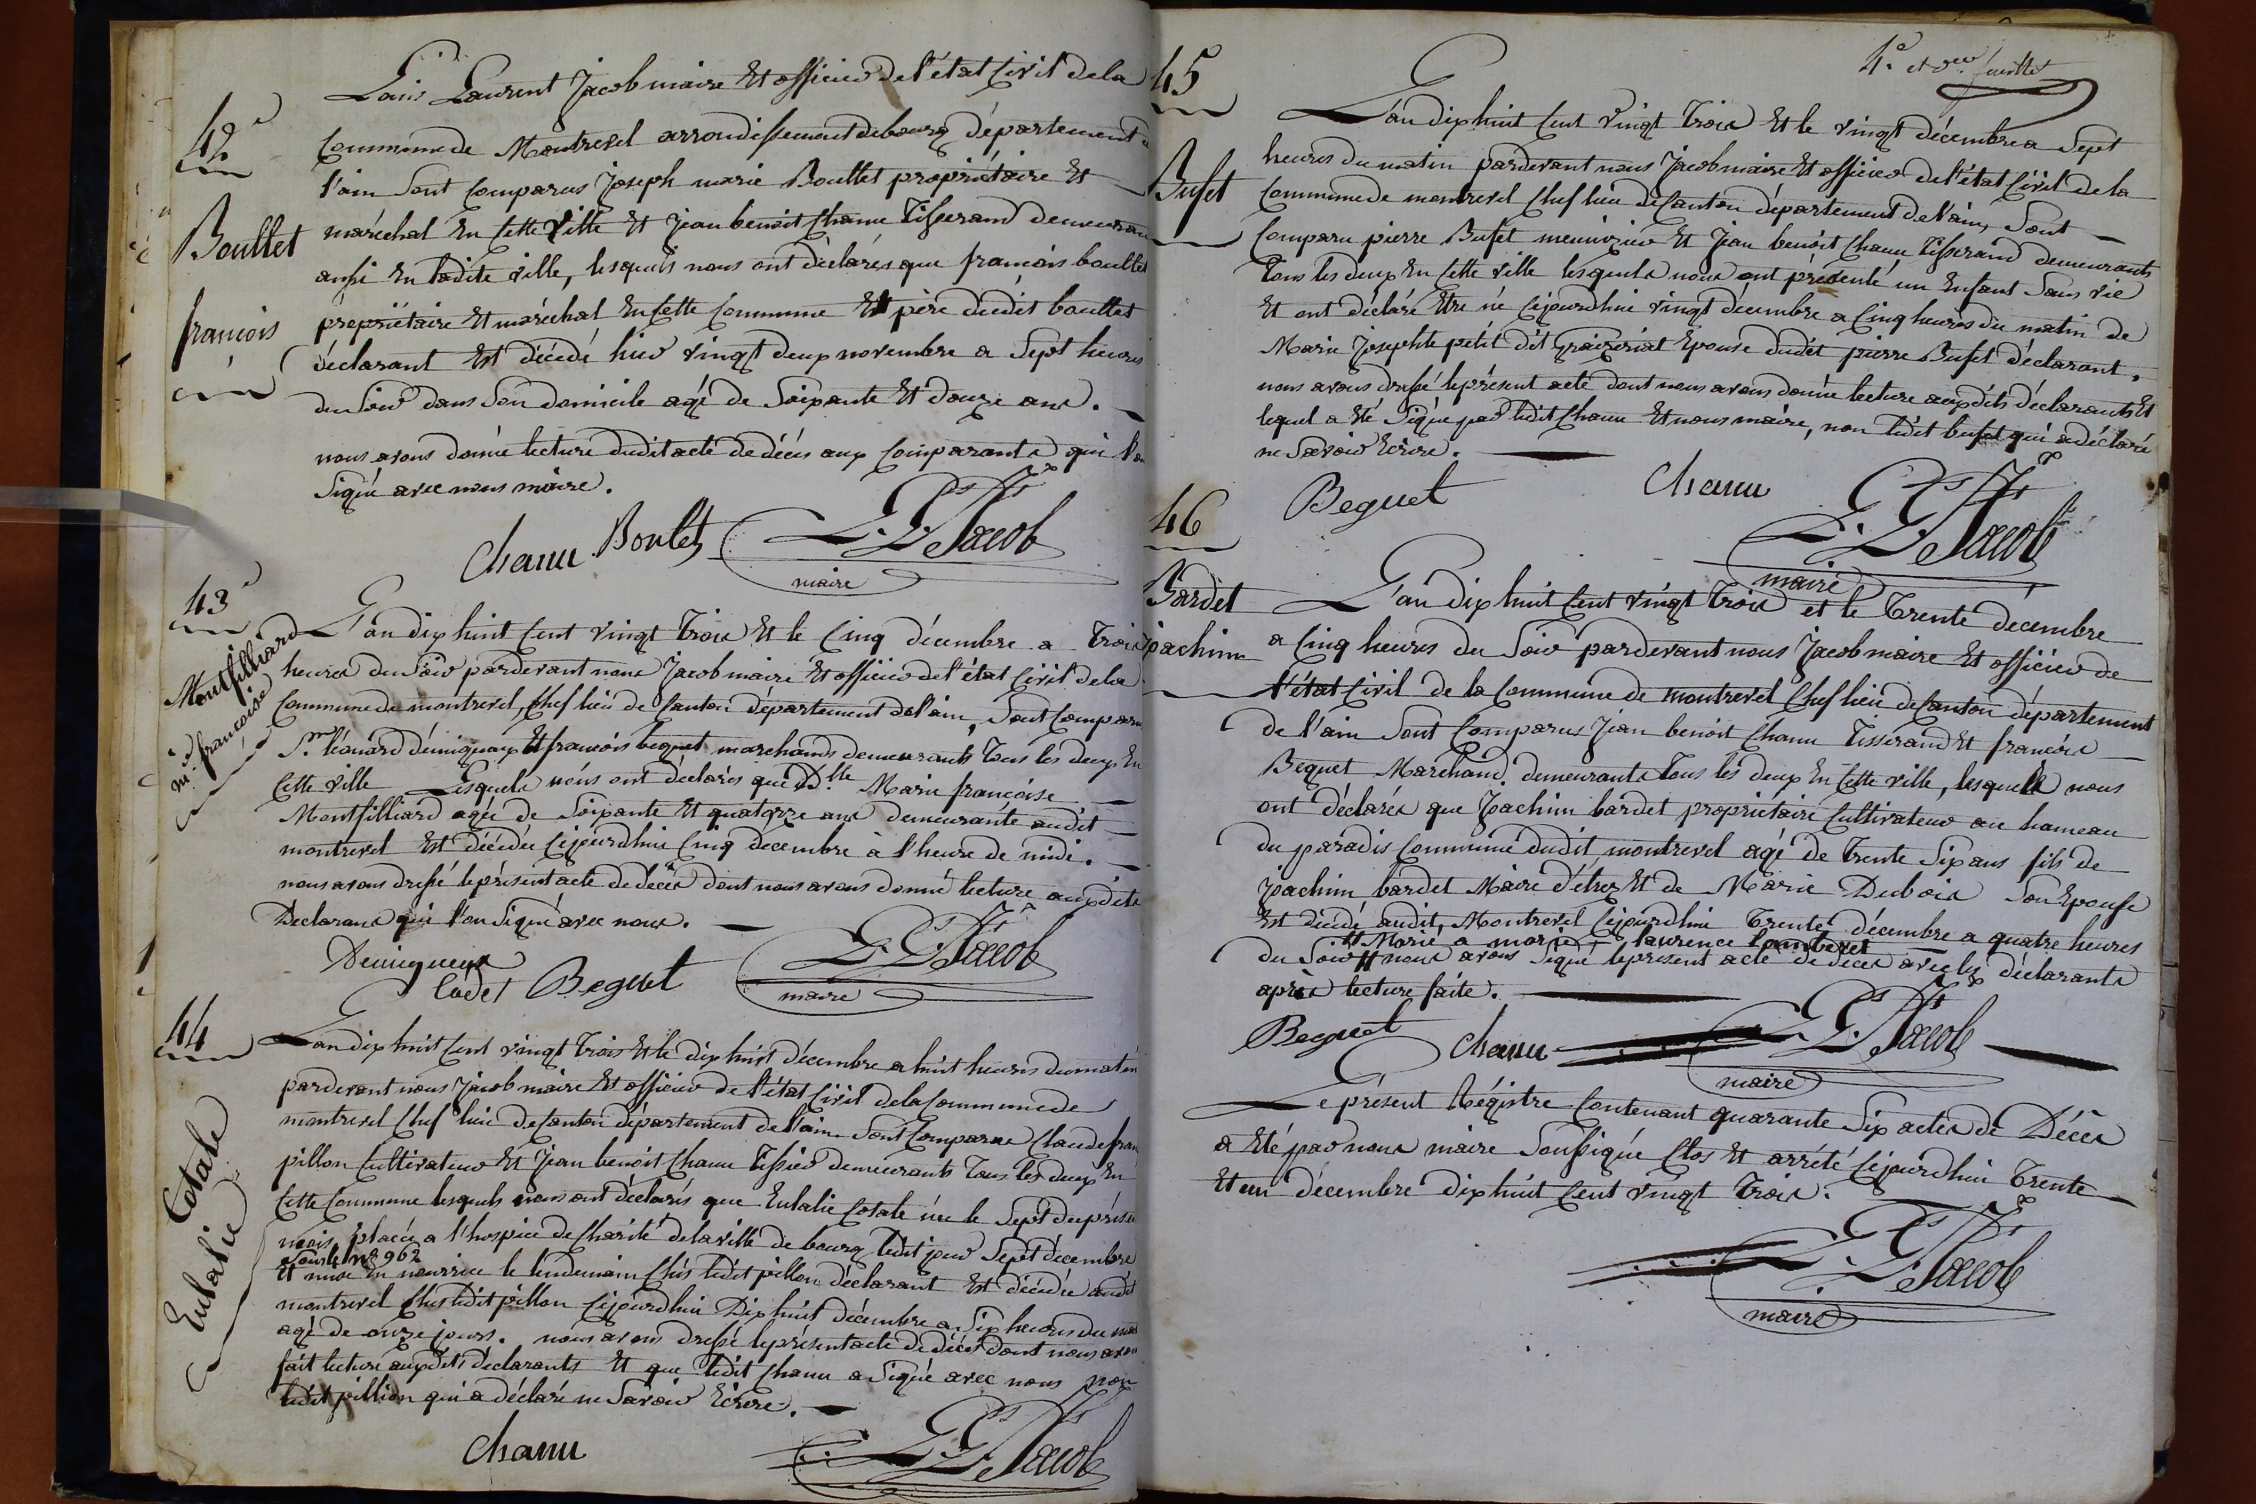 42e
Boullet
francois
Louis Laurent Jacob maire Et officier de l'état Civil de la
Commune de Montrevel arrondissement de bourg département
l'ain Sont Comparus Joseph marie Boullet propriétaire Et
maréchal En Cette Ville Et Jean benoit Chanu Tisserand demeuran
aussi En ladite ville, lesquels nous ont déclarés que francois boullet
propriétaire Et maréchal En Cette Commune Et père dudit boullet
déclarant Est décédé hier vingt deux novembre a Sept heures
du Soir dans Son domicile agé de Soixante Et douze ans.
nous avons donné lecture dudit acte de décès aux Comparants qui l'on
Signé avec nous maire.
Chanu Boulet L. L. Jacob
maire
43e
Montfilliard
me. francoise
L'an dix huit Cent vingt Trois Et le Cinq décembre a Trois
heures du Soir pardevant nous Jacob maire Et officier de l'état Civil de la
Commune de montrevel, Chef lieu de Canton département de l'ain, Sont Comparu
Sr. léonard démiqueux Et francois beguet marchands demeurants Tous les deux En
Cette ville Lesquels nous ont déclarés que Dlle Marie francoise
Montfilliard agée de Soixante Et quatorze ans demeurante audit
montrevel Est décédée Cejourdhui Cinq décembre à l'heure de midi.
nous avons dressé le présent acte de décès dont nous avons donné lecture auxdits
Déclarans qui l'on Signé avec nous.
Demiqueux
Cadet Beguet L. L. Jacob
maire
44
Cotale
Eulalie
L'an dix huit Cent vingt Trois Et le dix huit décembre a huit heures du matin
pardevant nous Jacob maire Et officier de l'état Civil de la Commune de
montrevel Chef lieu de Canton département de l'ain Sont Comparus Claude fran
pillon Cultivateur Et Jean benoit Chanu Tissier demeurants Tous les deux En
Cette Commune lesquels nous ont déclarés que Eulalie Cotale née le Sept du prése
mois, placée a l'hospice de Charité de la ville de bourg ledit jour Sept décembre
Sous le N° 962
Et mise En nourrice le lendemain Chés ledit pillon déclarant Est décédée audit
montrevel Chés ledit pillon Cejourdhui Dix huit décembre a Six heures du mat
agé de onze jours. nous avons dressé le présent acte de décès dont nous avon
fait lecture auxdits déclarants Et que ledit Chanu a Signé avec nous non
ledit pillion qui a déclaré ne Savoir Ecrire.
Chanu L. L. Jacob
4e. et der. feuillet
45
Bufet
L'an dix huit Cent Vingt Trois Et le vingt décembre a Sept
heures du matin pardevant nous Jacob maire Et officier de l'état Civil de la
Commune de montrevel Chef lieu de Canton département de l'ain, Sont
Comparu pierre Bufet menuizier Et Jean benoit Chanu Tisserand demeurants
Tous les deux En Cette ville lesquels nous ont présenté un Enfant Sans vie
Et ont déclaré Etre né Cejourdhui vingt décembre a Cinq heures du matin de
Marie Josephte petit dit Epouse dudit pierre Bufet déclarant.
nous avons dressé le présent acte dont nous avons donné lecture auxdits déclarants Et
lequel a été Signé par ledit Chanu Et nous maire, non ledit bufet qui a déclaré
ne Savoir Ecrire.
Beguet Chanu L. L. Jacob
maire
46
Bardet
joachim
L'an dix huit Cent vingt Trois et le Trente décembre
a Cinq heures du Soir pardevant nous Jacob maire Et officier de
l'état Civil de la Commune de montrevel Chef lieu de Canton département
de l'ain Sont Comparus Jean benoit Chanu Tisserand Et francois
Beguet Marchand demeurants Tous les deux En Cette ville, lesquels nous
ont déclarés que Joachim bardet propriétaire Cultivateur au hameau
du paradis Commune dudit montrevel agé de Trente Six ans fils de
joachim bardet Maire d'étrez Et de Marie Dubois Son Epouse
Est décédé audit Montrevel Cejourdhui Trente décembre a quatre heures
Marié a marie laurence lamberet
du Soir nous avons Signé le présent acte de décès avec les déclarants
après lecture faite.
Beguet Chanu L. L. Jacob
maire
Le présent Régistre Contenant quarante Six actes de Décès
a Eté par nous maire Soussigné Clos Et arrété Cejourdhui Trente
Et un décembre dix huit Cent vingt Trois.
L. L. Jacob
maire